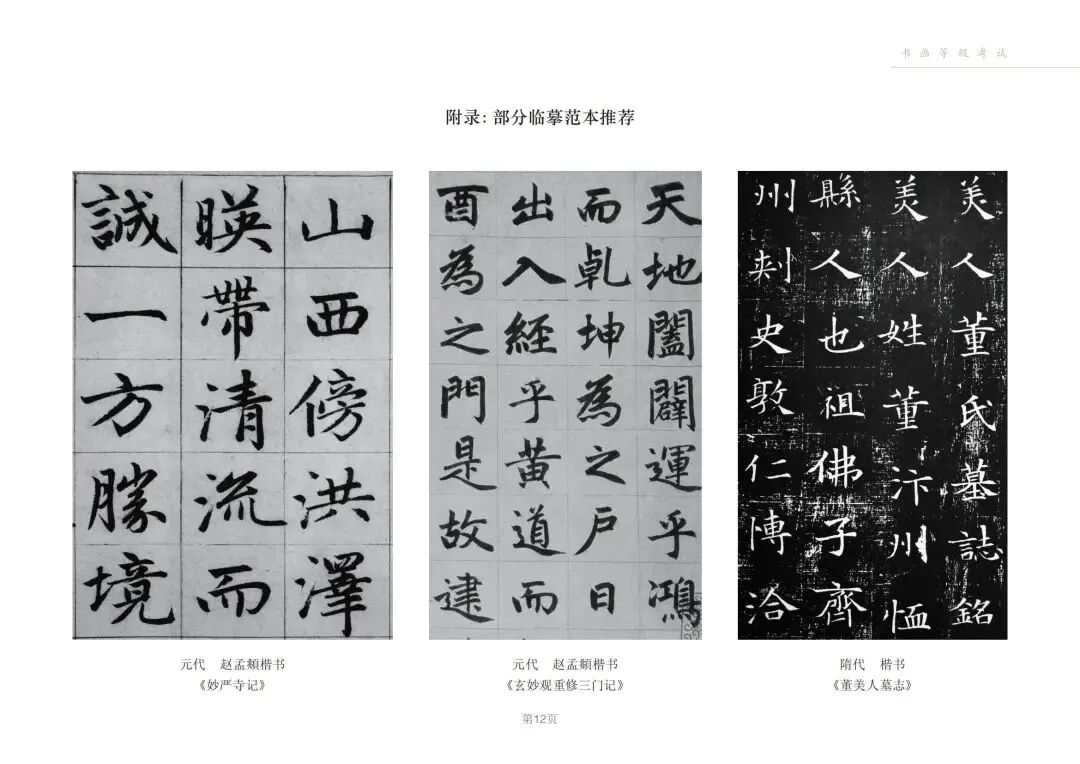 书画等级考试
附录：部分临摹范本推荐
山西傍洪澤
暎帶清流而
誠一方勝境
元代　赵孟頫楷书
《妙严寺记》
天地闔闢運乎鴻
而乹坤為之戶日
出入經乎黃道而
酉為之門是故建
元代　赵孟頫楷书
《玄妙观重修三门记》
美人董氏墓誌銘
美人姓董汴州恤
縣人也祖佛子齊
州刾史敦仁愽洽
隋代　楷书
《董美人墓志》
第12页